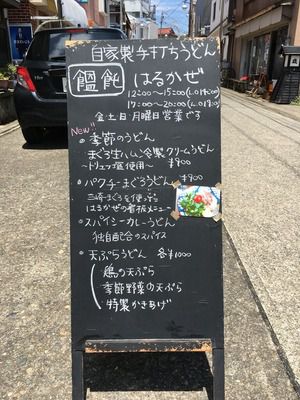 自家製手打ちうどん
饂飩 はるかぜ
12:00〜15:00(L.O14:30)
17:00〜20:00(L.O19:30)
金土日月曜日営業です
New
季節のうどん
まぐろ生ハムン冷製クリームうどん
〜トリュフ塩使用〜 ¥900
パクチーまぐろうどん ¥900
三崎まぐろを使った
はるかぜの看板メニュー
スパイシーカレーうどん
独自配合のスパイス
天ぷらうどん 各¥1000
鶏の天ぷら
季節野菜の天ぷら
特製かきあげ